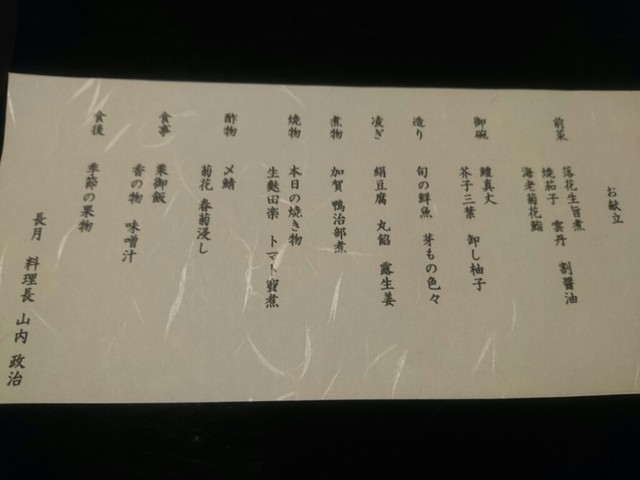 お献立
前菜
落花生旨煮
焼茄子 雲丹 割醤油
海老菊花鮨
御碗
鱧真丈
芥子三葉 卸し柚子
造り
旬の鮮魚 芽もの色々
凌ぎ
絹豆腐 丸餡 露生姜
煮物
加賀 鴨治部煮
焼物
本日の焼き物
生麩田楽 トマト蜜煮
酢物
〆鯖
菊花 春菊浸し
食事
栗御飯
香の物 味噌汁
食後
季節の果物
長月 料理長 山内 政治